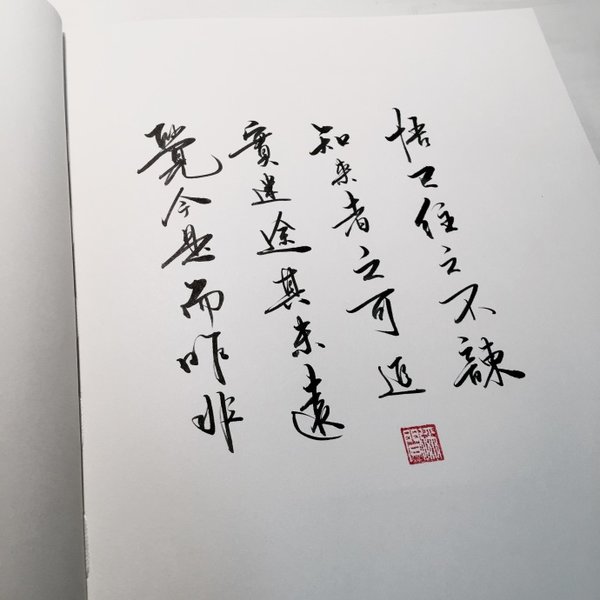 悟已往之不諫
知來者之可追
實迷途其未遠
覺今是而昨非